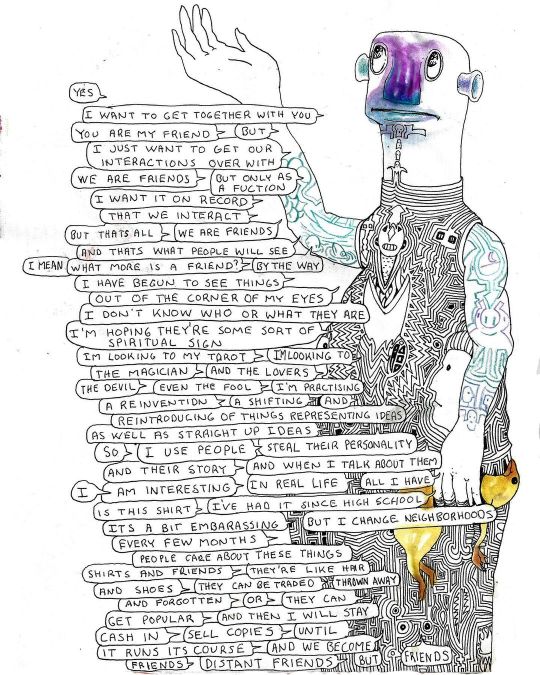 YES
I WANT TO GET TOGETHER WITH YOU
YOU ARE MY FRIEND BUT
I JUST WANT TO GET OUR
INTERACTIONS OVER WITH
WE ARE FRIENDS BUT ONLY AS
A FUCTION
I WANT IT ON RECORD
THAT WE INTERACT
BUT THATS ALL WE ARE FRIENDS
AND THATS WHAT PEOPLE WILL SEE
I MEAN WHAT MORE IS A FRIEND? BY THE WAY
I HAVE BEGUN TO SEE THINGS
OUT OF THE CORNER OF MY EYES
I DON'T KNOW WHO OR WHAT THEY ARE
I'M HOPING THEY'RE SOME SORT OF
SPIRITUAL SIGN
IM LOOKING TO MY TAROT IM LOOKING TO
THE MAGICIAN AND THE LOVERS
THE DEVIL EVEN THE FOOL I'M PRACTISING
A REINVENTION A SHIFTING AND
REINTRODUCING OF THINGS REPRESENTING IDEAS
AS WELL AS STRAIGHT UP IDEAS
SO I USE PEOPLE STEAL THEIR PERSONALITY
AND THEIR STORY AND WHEN I TALK ABOUT THEM
I AM INTERESTING IN REAL LIFE ALL I HAVE
IS THIS SHIRT I'VE HAD IT SINCE HIGH SCHOOL
ITS A BIT EMBARASSING BUT I CHANGE NEIGHBORHOODS
EVERY FEW MONTHS
PEOPLE CARE ABOUT THESE THINGS
SHIRTS AND FRIENDS THEY'RE LIKE HAIR
AND SHOES THEY CAN BE TRADED THROWN AWAY
AND FORGOTTEN OR THEY CAN
GET POPULAR AND THEN I WILL STAY
CASH IN SELL COPIES UNTIL
IT RUNS ITS COURSE AND WE BECOME
FRIENDS DISTANT FRIENDS BUT FRIENDS